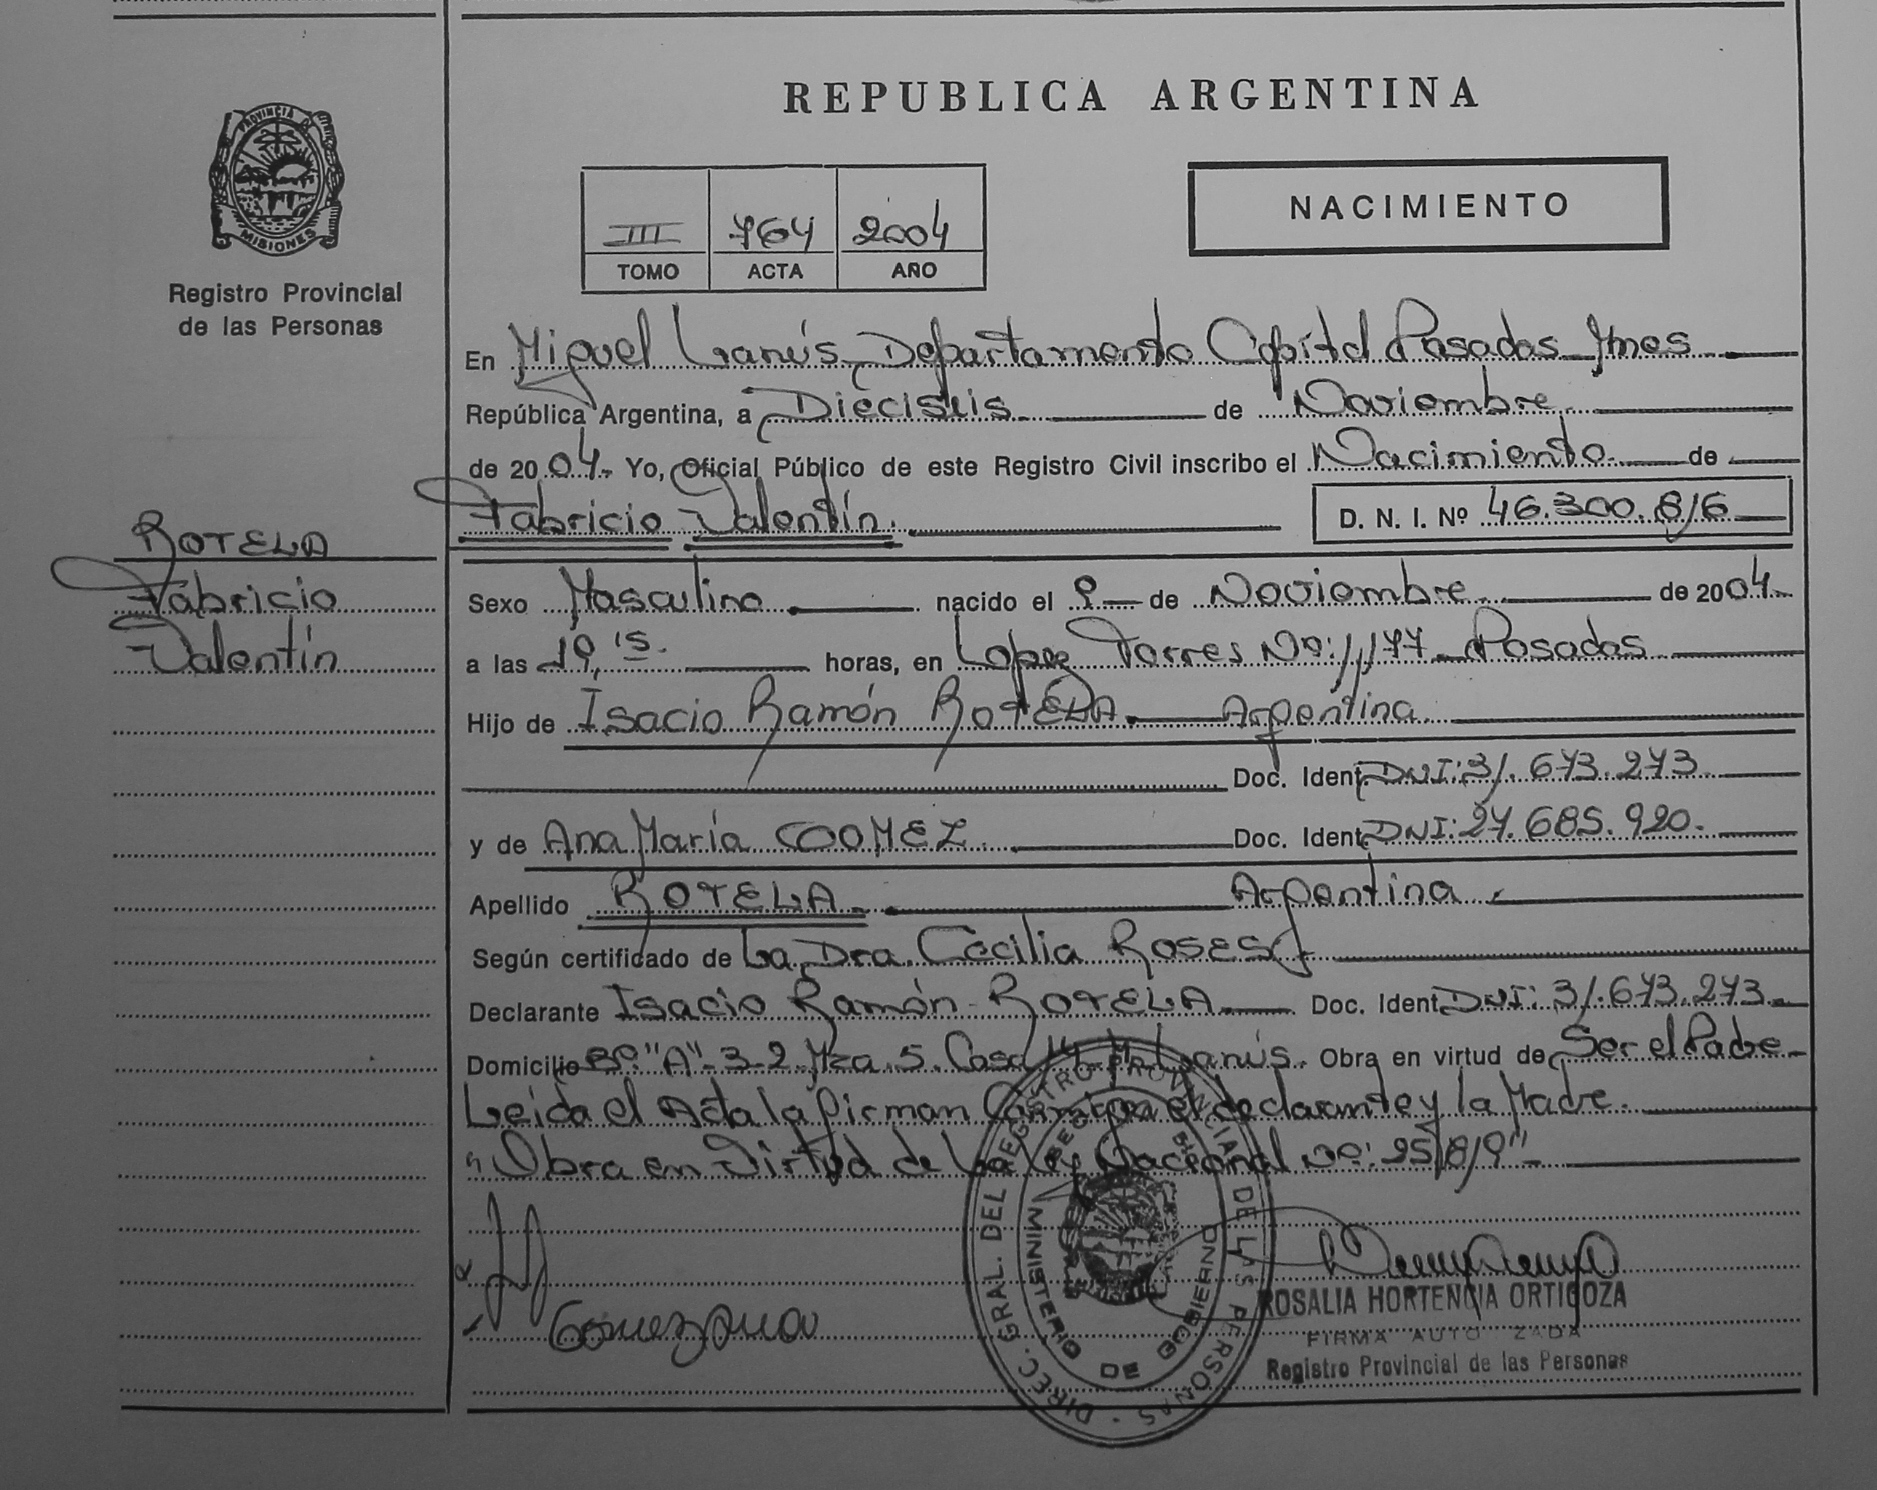 REPUBLICA ARGENTINA
PROVINCIA DE
MISIONES
Registro Provincial
de las Personas
NACIMIENTO
III 764 2004
TOMO ACTA AÑO
En Miguel Lanús, Departamento Capital Posadas Mnes
República Argentina, a Dieciseis de Noviembre
de 2004. Yo, Oficial Público de este Registro Civil inscribo el Nacimiento de
Fabricio Valentín. D. N. I. Nº 46.300.816
ROTELA
Fabricio
Valentín
Sexo Masculino nacido el 9 de Noviembre de 2004.
a las 19,15. horas, en Lopez Torres Nº: 1,177 Posadas
Hijo de Isacio Ramón ROTELA. Argentina.
Doc. Ident. DNI: 31.673.273.
y de Ana María GOMEZ. Doc. Ident. DNI: 27.685.920.
Apellido ROTELA. Argentina.
Según certificado de La Dra. Cecilia Roses
Declarante Isacio Ramón ROTELA Doc. Ident. DNI: 31.673.273.
Domicilio Bº "A" 3-2 Mza. 5. Casa 14 M. Lanús. Obra en virtud de Ser el Padre
Leida el Acta la firman Conmigo el declarante y la Madre.
"Obra en Virtud de La Ley Nacional Nº: 25.819"
Gomez Ana
DIREC. GRAL. DEL REGISTRO PROVINCIAL DE LAS PERSONAS
MINISTERIO DE GOBIERNO
ROSALIA HORTENCIA ORTIGOZA
FIRMA AUTO ZADA
Registro Provincial de las Personas